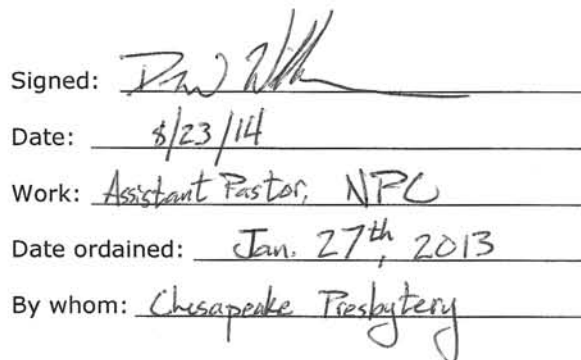 Signed:
Date: 8/23/14
Work: Assistant Pastor, NPC
Date ordained: Jan. 27th, 2013
By whom: Chesapeake Presbytery